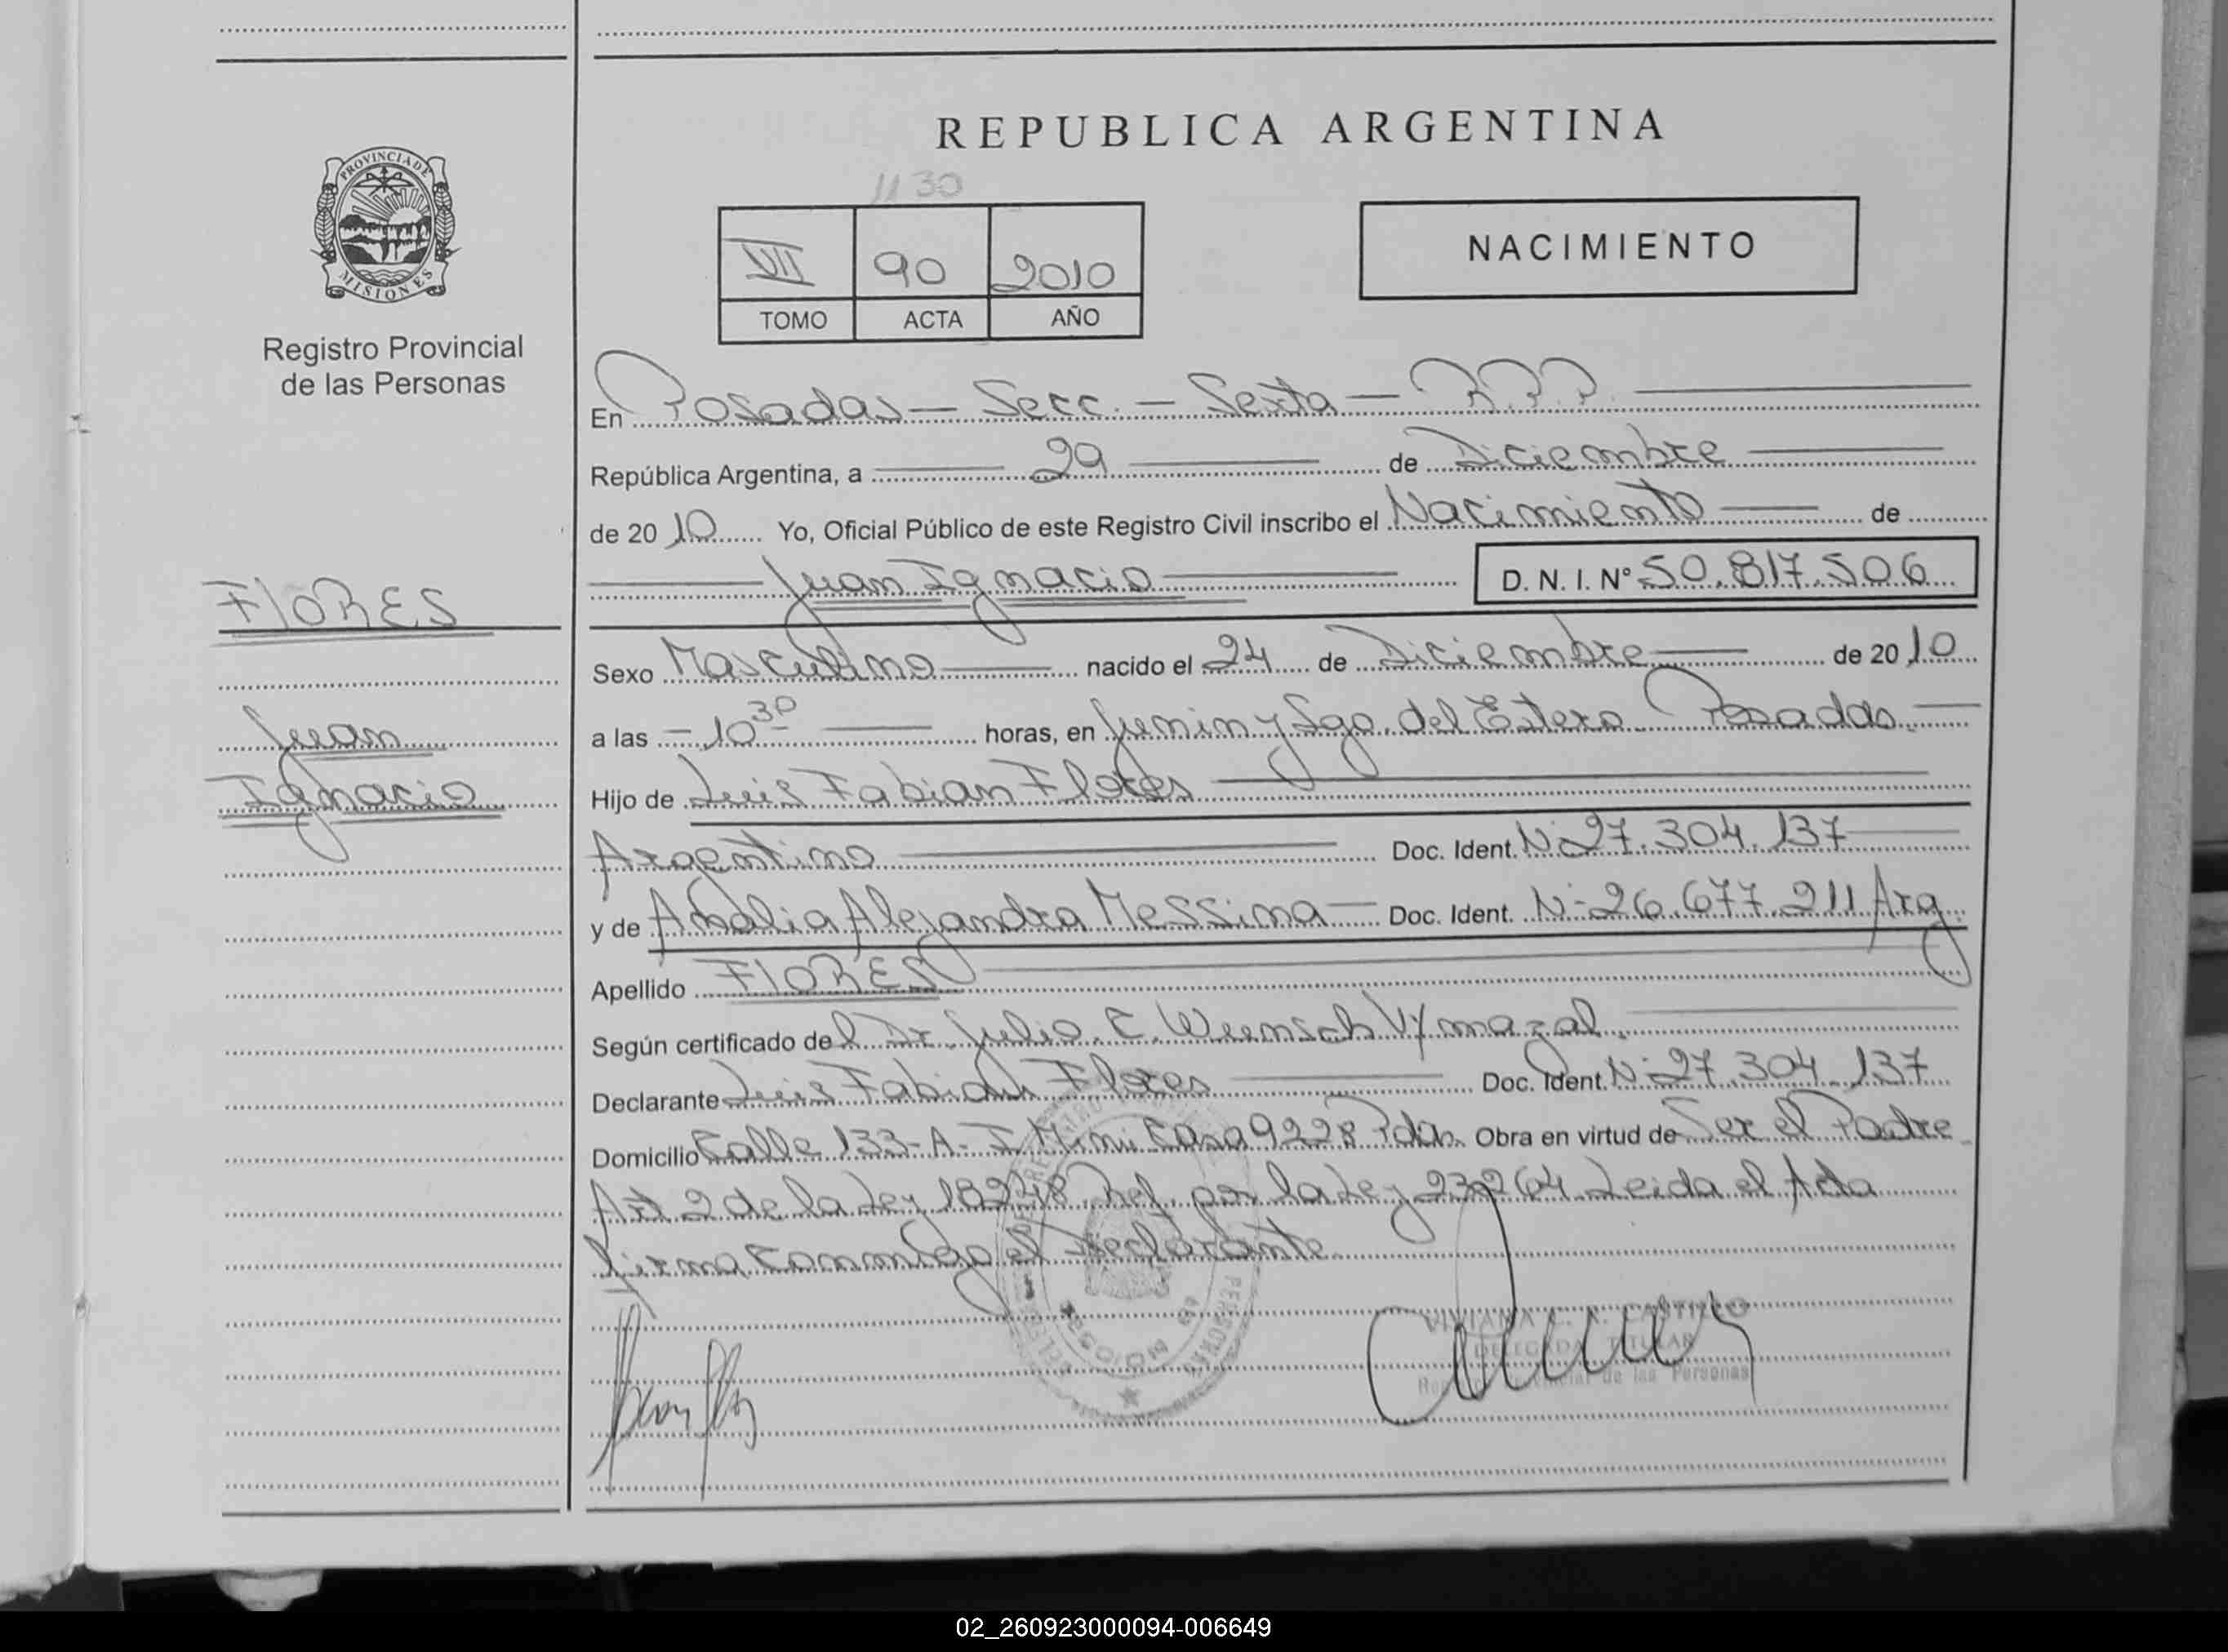 REPUBLICA ARGENTINA
1130
PROVINCIA DE
MISIONES
Registro Provincial
de las Personas
VII 90 2010
TOMO ACTA AÑO
NACIMIENTO
En Posadas - Secc. - Sexta - R.P.P.
República Argentina, a 29 de Diciembre
de 2010 Yo, Oficial Público de este Registro Civil inscribo el Nacimiento de
Juan Ignacio D. N. I. Nº 50.817.506
FLORES
Juan
Ignacio
Sexo Masculino nacido el 24 de Diciembre de 2010
a las - 10 30 horas, en Junin y Sgo. del Estero Posadas.
Hijo de Luis Fabian Flores
Argentino Doc. Ident. Nº 27.304.137
y de Analia Alejandra Messina Doc. Ident. Nº 26.677.211 Arg.
Apellido FLORES
Según certificado del Dr. Julio. C. Wunsch Vymazal.
Declarante Luis Fabian Flores Doc. Ident. Nº 27.304.137
Domicilio Calle 133-A- I. Mini Casa 9228 Pdas. Obra en virtud de Ser el Padre
Art 2 de la Ley 18248 Ref. por la Ley 23264 Leida el Acta
firma conmigo el Declarante
VIVIANA C. R. CASTILLO
DELEGADA TITULAR
de las Personas
02_260923000094-006649